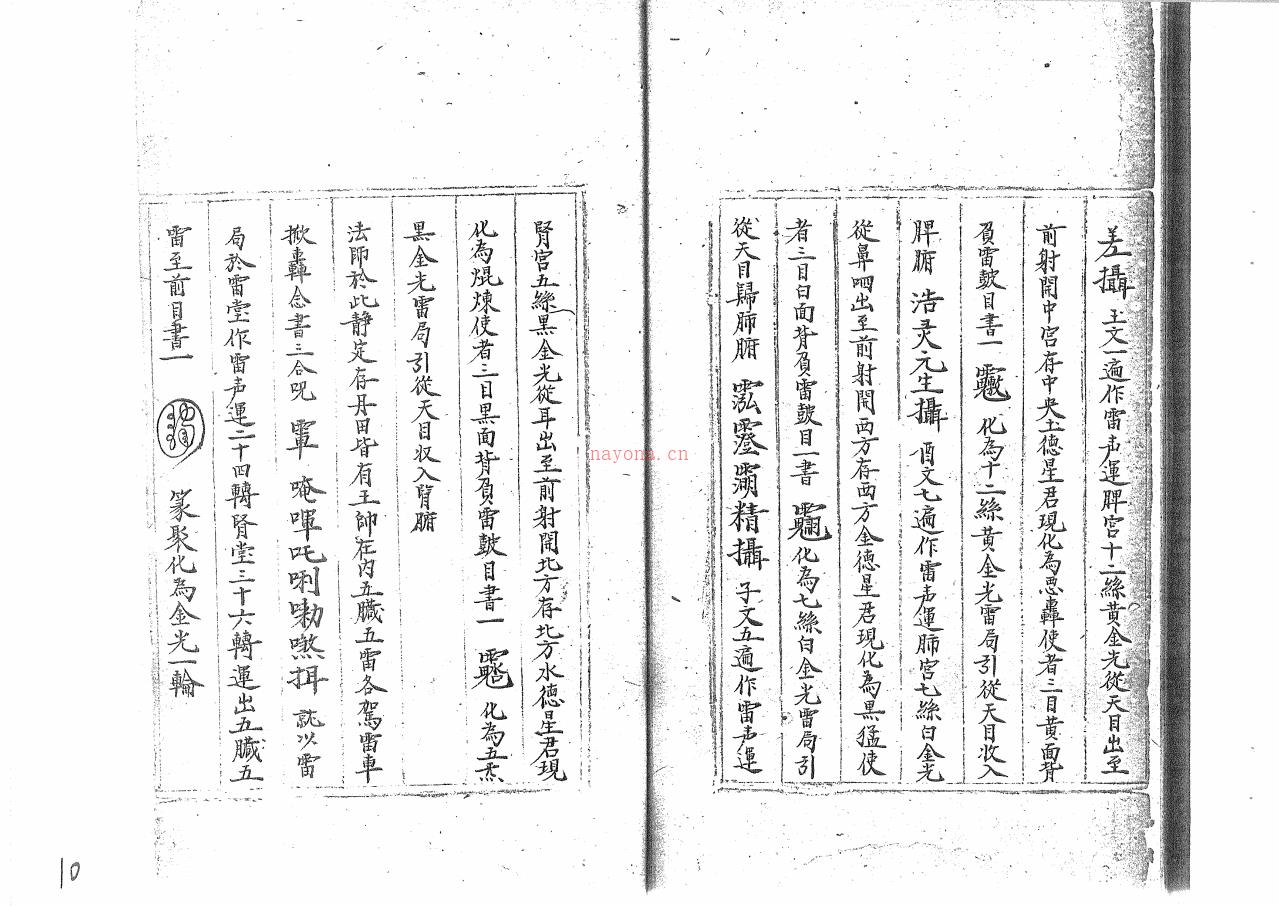 差攝 玉文一遍作雷声運脾宫十二絲黄金光從天目出至
前射開中宫存中央土德星君現化為惡轟使者三目黄面背
負雷皷目書一 化為十二絲黄金光雷局引從天目收入
脾腑 浩灵元生攝 酉文七遍作雷声運肺宫七絲白金光
從鼻呬出至前射開西方存西方金德星君現化為黑猛使
者三目白面背負雷皷目一書 化為七絲白金光雷局引
從天目歸肺腑 精攝 子文五遍作雷声運
腎宫五絲黒金光從耳出至前射開北方存北方水德星君現
化為焜煉使者三目黒面背負雷皷目書一 化為五炁
黒金光雷局引從天目収入腎腑
法師於此静定存丹田皆有王帥在内五臓五雷各駕雷車
掀轟念書三合咒 唵㖇吒唎㘑 就以雷
局於雷堂作雷声運二十四轉腎堂三十六轉運出五臓五
雷至前目書一 篆聚化為金光一輪
nayona.cn
10